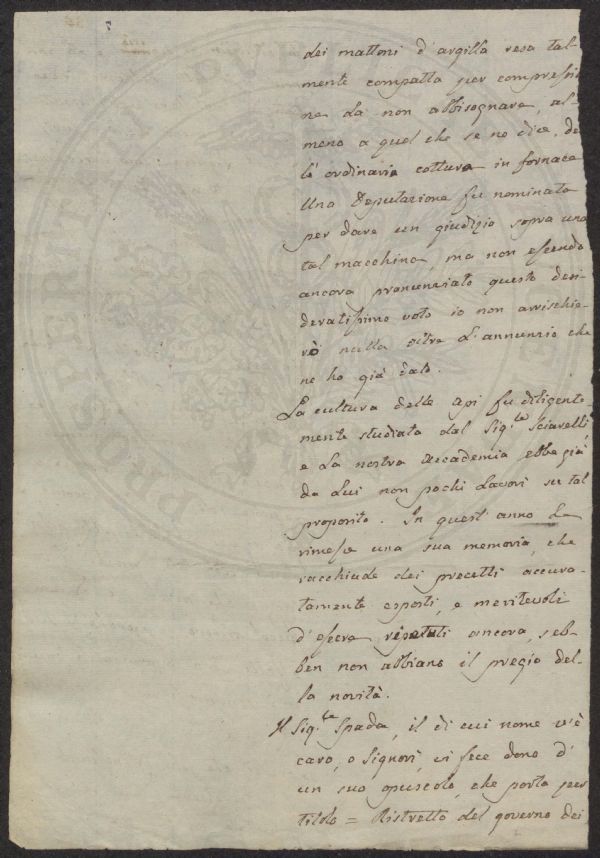 7
dei mattoni d'argilla resa tal-
mente compatta per compressio
ne da non abbisognare, al-
meno a quel che se ne dice, del
l'ordinaria cottura in fornace
Una Deputazione fu nominata
per dare un giudizio sopra una
tal macchina, ma non essendo
ancora pronunziato questo desi-
deratissimo voto io non arrischie
rò nulla oltre l'annunzio che
ne ho già dato.
La cultura delle api fu diligente-
mente studiata dal Sig.re Sciarelli,
e la nostra Accademia ebbe già
da lui non pochi lavori su tal
proposito. In quest'anno le
rimesse una sua memoria, che
racchiude dei precetti accura-
tamente esposti, e meritevoli
d'essere ripetuti ancora, seb-
ben non abbiano il pregio del-
la novità.
Il Sig.re Spada, il di cui nome v'è
caro, o Signori, vi fece dono d'
un suo opuscolo, che porta per
titolo = Ristretto del governo dei